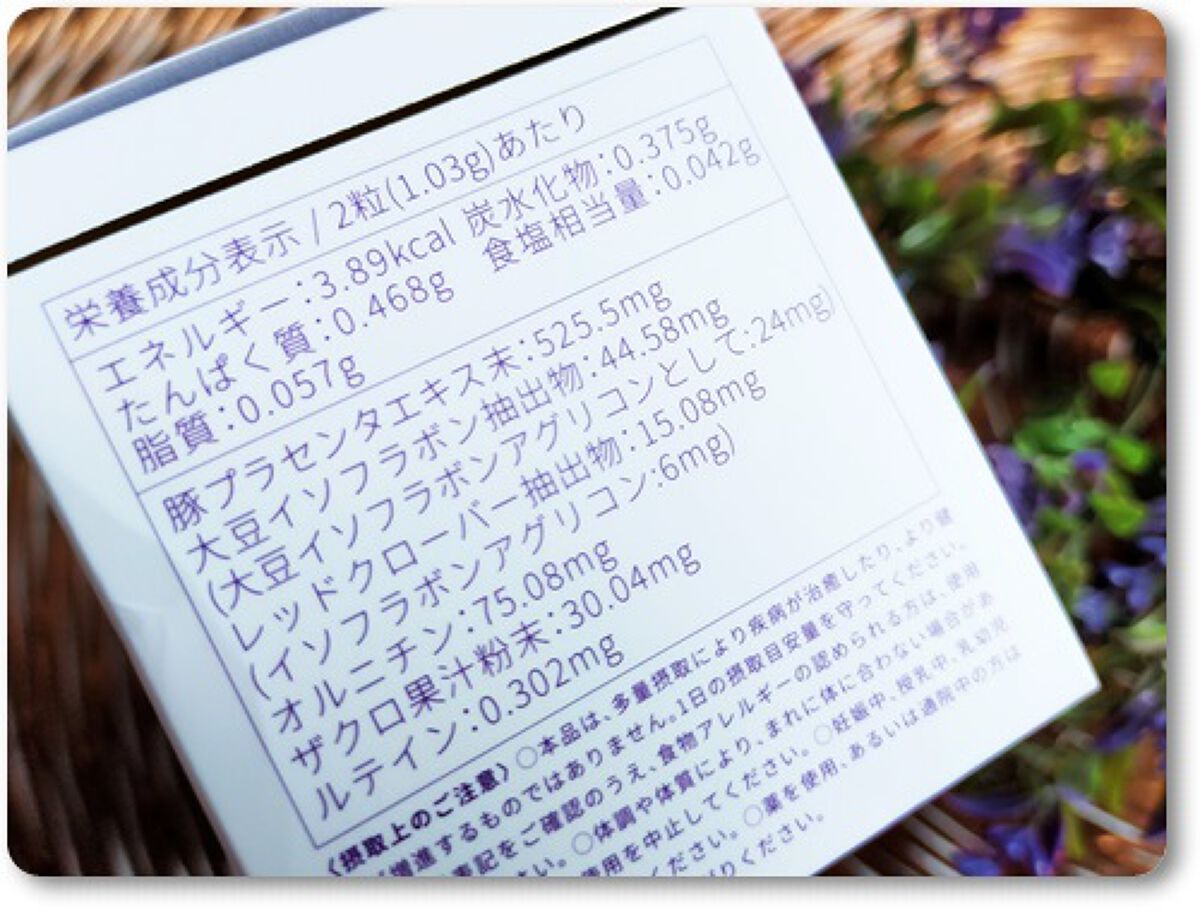 栄養成分表示 / 2粒(1.03g)あたり
エネルギー:3.89kcal 炭水化物:0.375g
たんぱく質:0.468g 食塩相当量:0.042g
脂質:0.057g
豚プラセンタエキス末:525.5mg
大豆イソフラボン抽出物:44.58mg
(大豆イソフラボンアグリコンとして:24mg)
レッドクローバー抽出物:15.08mg
(イソフラボンアグリコン:6mg)
オルニチン:75.08mg
ザクロ果汁粉末:30.04mg
ルテイン:0.302mg
〈摂取上のご注意〉○本品は、多量摂取により疾病が治癒したり、より健
増進するものではありません。1日の摂取目安量を守ってください。
表記をご確認のうえ、食物アレルギーの認められる方は、使用
さい。○体調や体質により、まれに体に合わない場合があ
使用を中止してください。○妊娠中、授乳中、乳幼児
ください。○薬を使用、あるいは通院中の方は
りください。